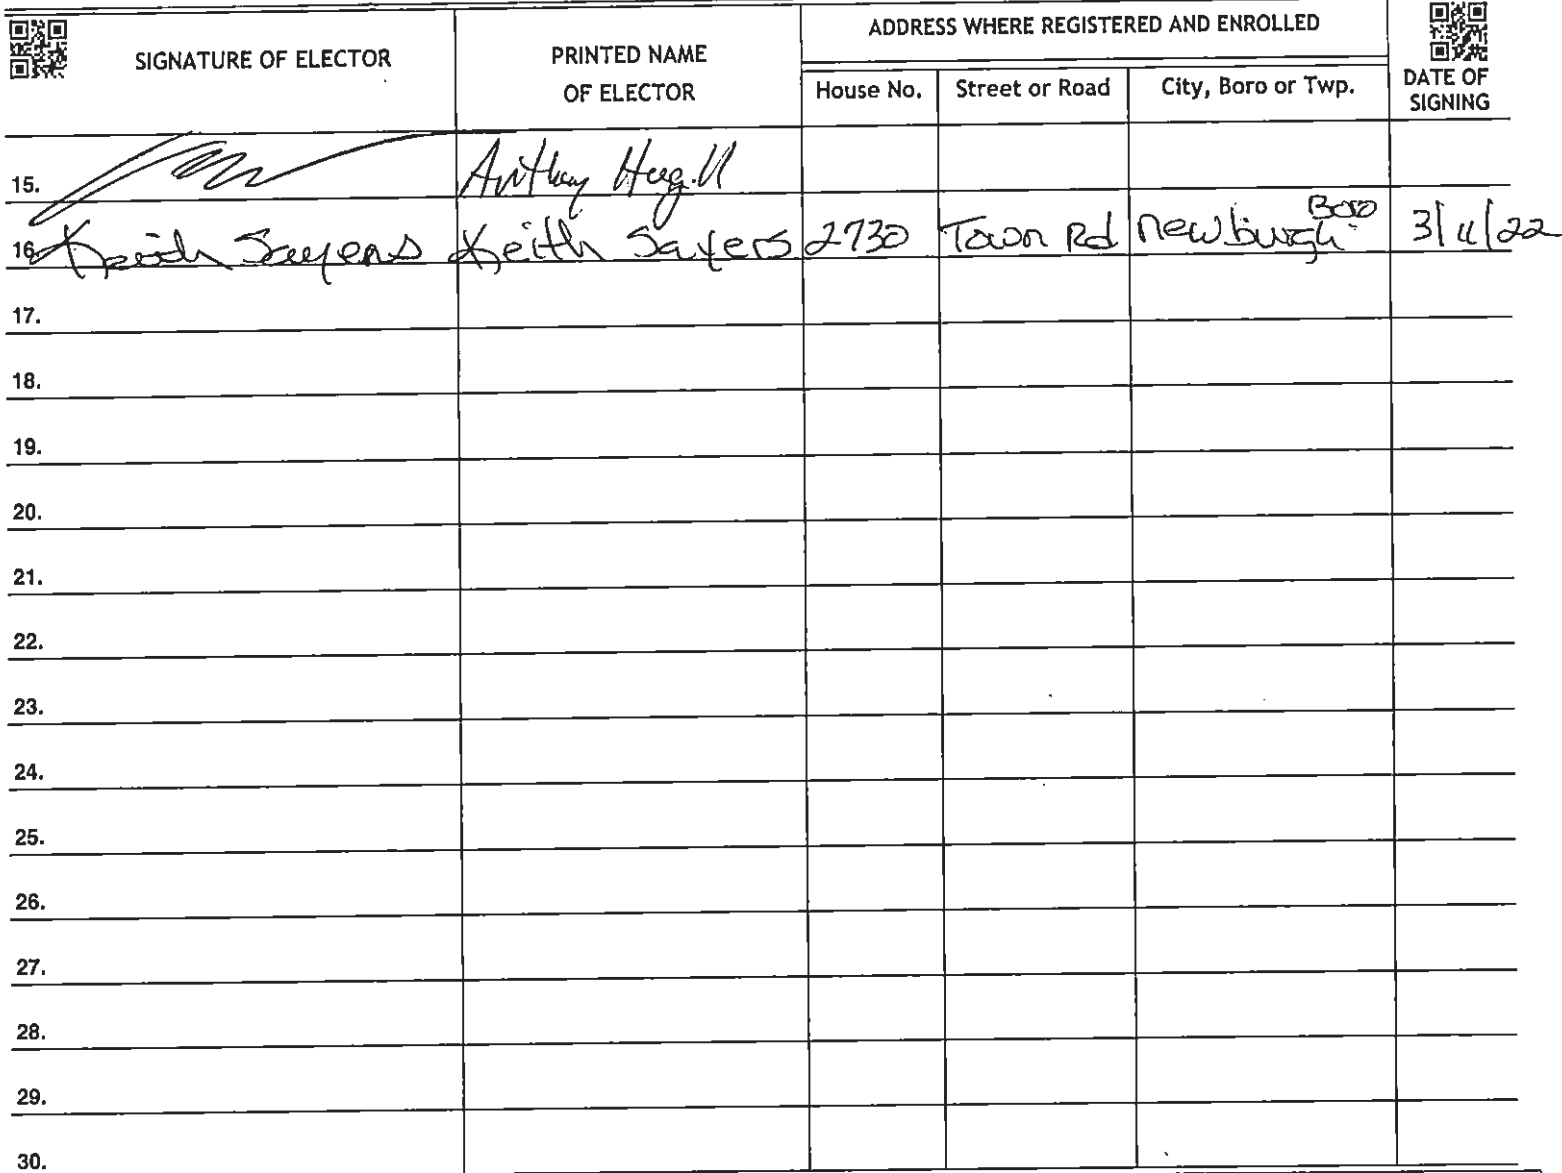 SIGNATURE OF ELECTOR
PRINTED NAME
OF ELECTOR
ADDRESS WHERE REGISTERED AND ENROLLED
House No.
Street or Road
City, Boro or Twp.
DATE OF
SIGNING
15. Anthony
16. Keith Sayers Keith Sayers 2730 Town Rd Newburgh Boro 3/11/22
17.
18.
19.
20.
21.
22.
23.
24.
25.
26.
27.
28.
29.
30.